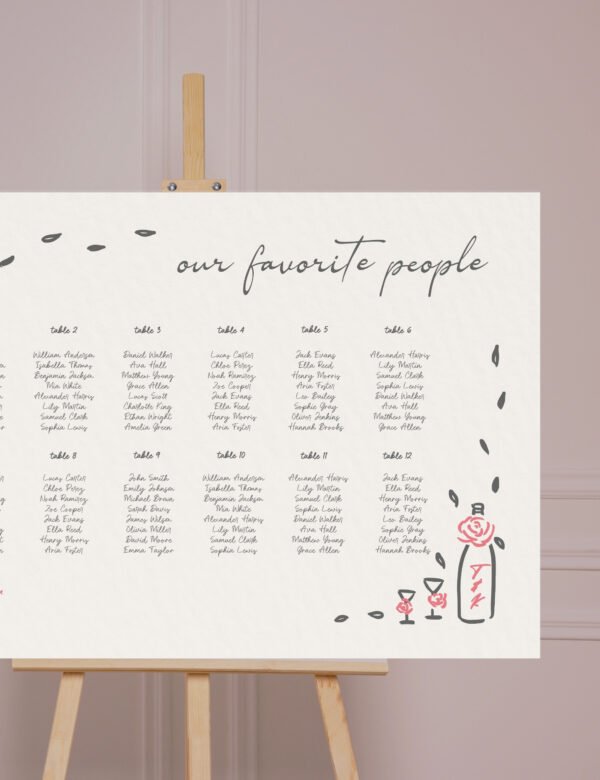 our favorite people
table 2
William Anderson
Isabella Thomas
Benjamin Jackson
Mia White
Alexander Harris
Lily Martin
Samuel Clark
Sophia Lewis
table 3
Daniel Walker
Ava Hall
Matthew Young
Grace Allen
Lucas Scott
Charlotte King
Ethan Wright
Amelia Green
table 4
Lucas Carter
Chloe Perez
Noah Ramirez
Zoe Cooper
Jack Evans
Ella Reed
Henry Morris
Aria Foster
table 5
Jack Evans
Ella Reed
Henry Morris
Aria Foster
Leo Bailey
Sophie Gray
Oliver Jenkins
Hannah Brooks
table 6
Alexander Harris
Lily Martin
Samuel Clark
Sophia Lewis
Daniel Walker
Ava Hall
Matthew Young
Grace Allen
table 8
Lucas Carter
Chloe Perez
Noah Ramirez
Zoe Cooper
Jack Evans
Ella Reed
Henry Morris
Aria Foster
table 9
John Smith
Emily Johnson
Michael Brown
Sarah Davis
James Wilson
Olivia Miller
David Moore
Emma Taylor
table 10
William Anderson
Isabella Thomas
Benjamin Jackson
Mia White
Alexander Harris
Lily Martin
Samuel Clark
Sophia Lewis
table 11
Alexander Harris
Lily Martin
Samuel Clark
Sophia Lewis
Daniel Walker
Ava Hall
Matthew Young
Grace Allen
table 12
Jack Evans
Ella Reed
Henry Morris
Aria Foster
Leo Bailey
Sophie Gray
Oliver Jenkins
Hannah Brooks